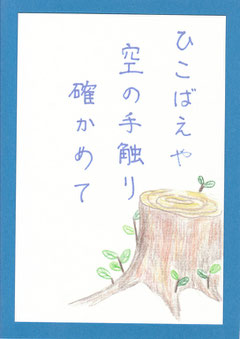 ひこばえや
空の手触り
確かめて